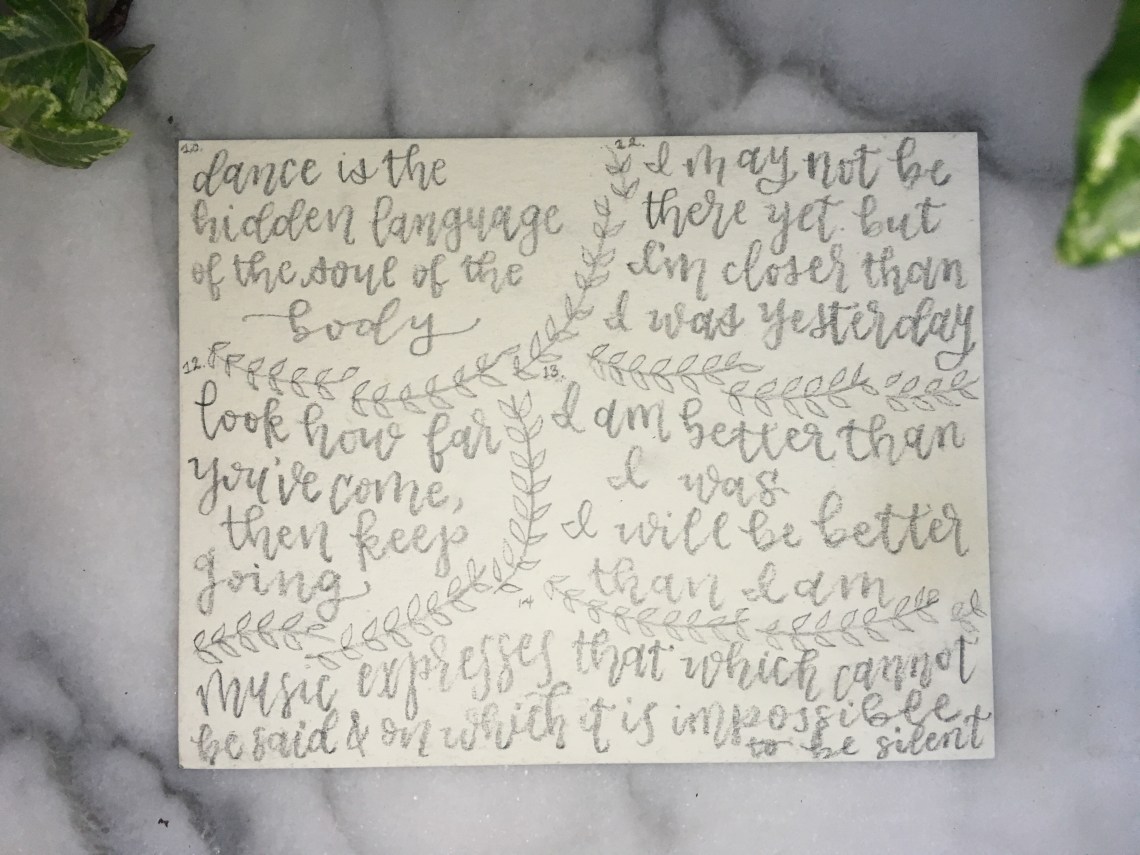 10.
dance is the
hidden language
of the soul of the
body
22.
I may not be
there yet but
I'm closer than
I was yesterday
12.
look how far
you've come,
then keep
going
13.
I am better than
I was
I will be better
than I am
14
Music expresses that which cannot
be said & on which it is impossible
to be silent